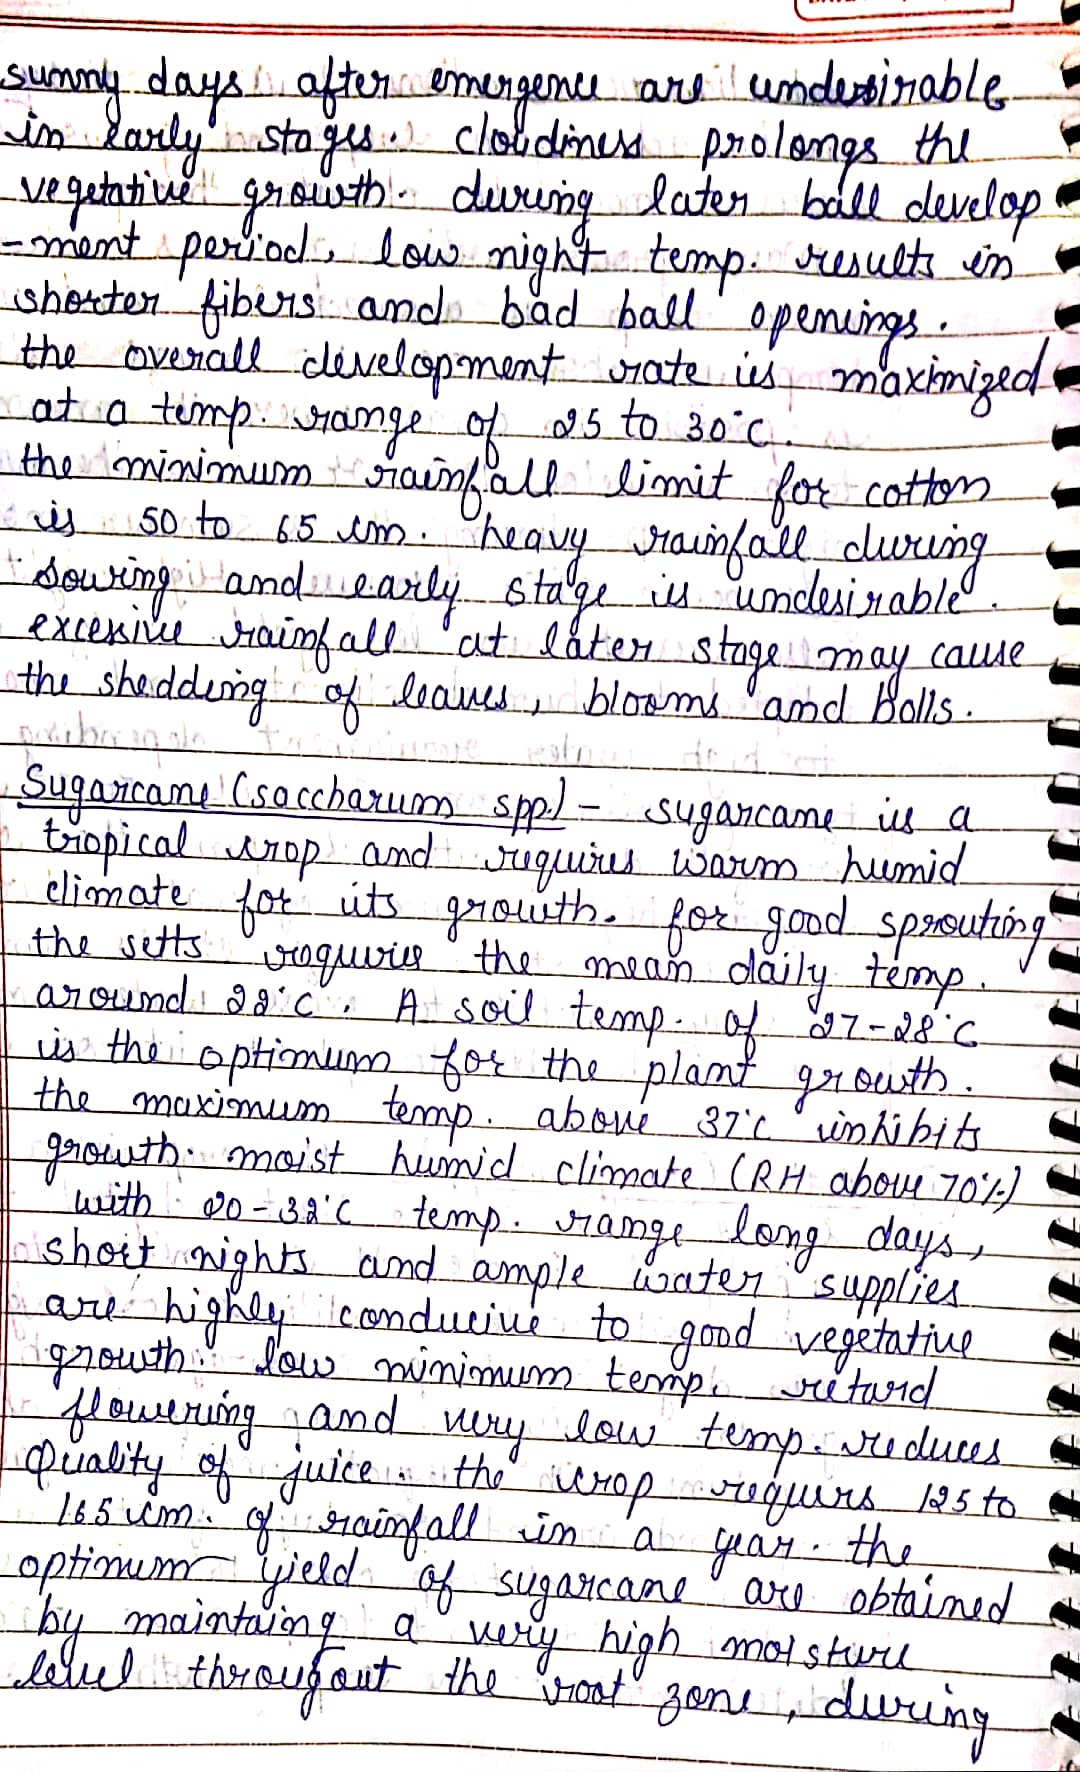 sunny days after emergence are undesirable
in early stages. cloudiness prolongs the
vegetative growth. during later ball develop
-ment period, low night temp. results in
shorter fibers and bad ball openings.
the overall development rate is maximized
at a temp. range of 25 to 30°C.
the minimum rainfall limit for cotton
is 50 to 65 cm. heavy rainfall during
sowing and early stage is undesirable.
excessive rainfall at later stage may cause
the shedding of leaves, blooms and bolls.
Sugarcane (saccharum spp.) - sugarcane is a
tropical crop and requires warm humid
climate for its growth. for good sprouting
the setts requires the mean daily temp.
around 22°C. A soil temp. of 27-28°C
is the optimum for the plant growth.
the maximum temp. above 37°C inhibits
growth. moist humid climate (RH above 70%)
with 20-32°C temp. range long days,
short nights and ample water supplies
are highly conducive to good vegetative
growth. low minimum temp. retard
flowering and very low temp. reduces
Quality of juice. the crop requirs 125 to
165 cm. of rainfall in a year. the
optimum yield of sugarcane are obtained
by maintaing a very high moisture
level througout the root zone, during